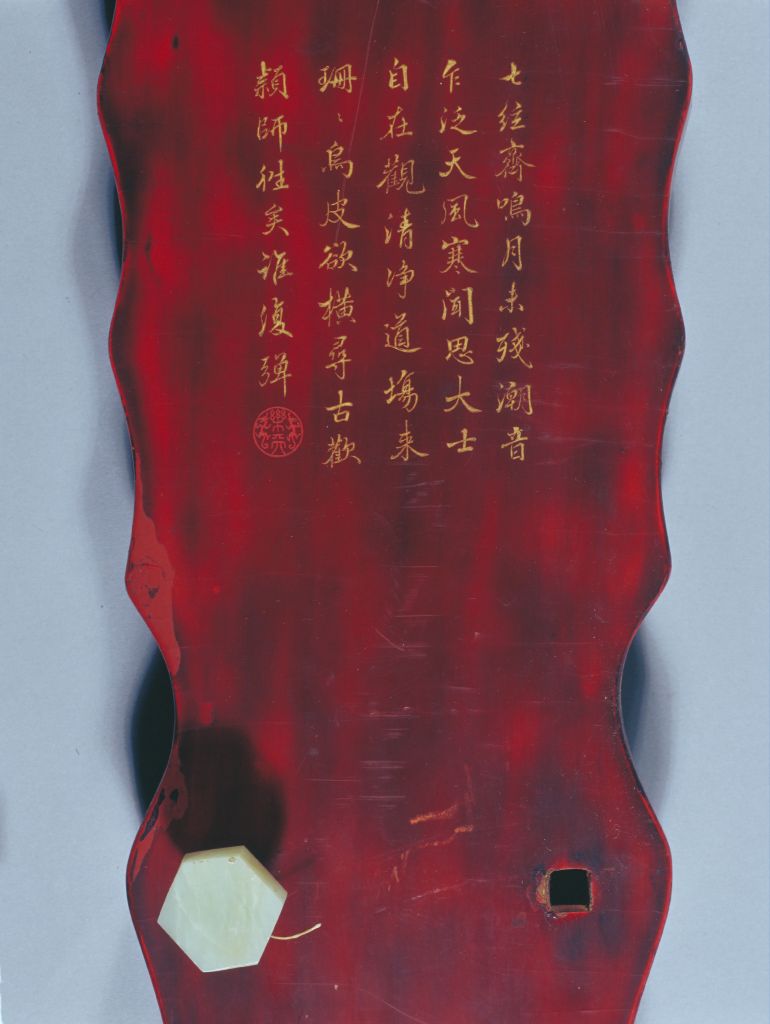 七絃齊鳴月未殘潮音
乍泛天風寒聞思大士
自在觀清净道塲来
珊〻烏皮欲橫尋古歡
穎師徃矣誰復彈